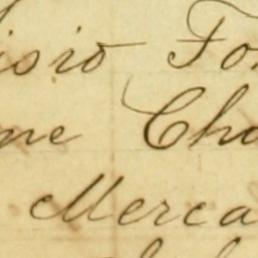 isio Fo
ne Cha
Merca